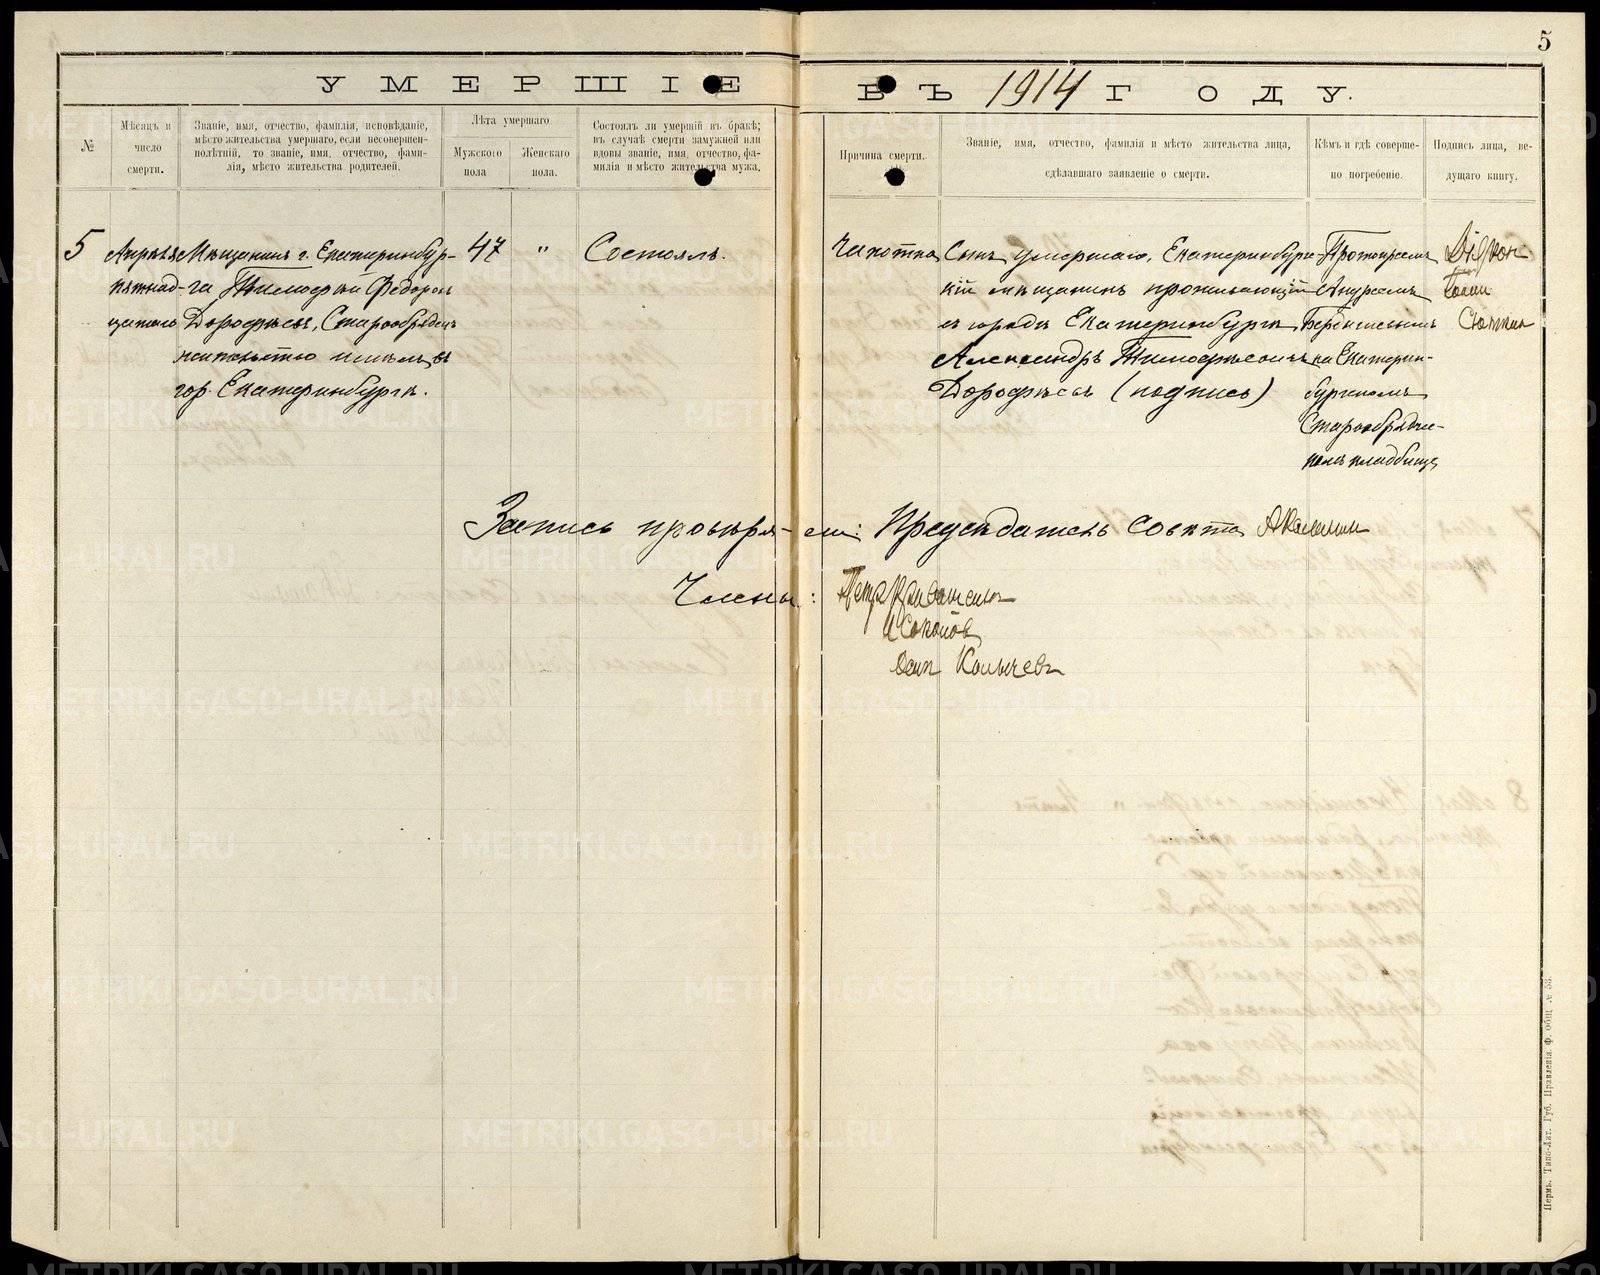 5
УМЕРШІЕ ВЪ 1914 ГОДУ.
№
Мѣсяцъ и
число
смерти.
Званіе, имя, отчество, фамилія, исповѣданіе,
мѣсто жительства умершаго, если несовершен-
нолѣтній, то званіе, имя, отчество, фами-
лія, мѣсто жительства родителей.
Лѣта умершаго
Мужского
пола
Женскаго
пола.
Состоялъ ли умершій въ бракѣ;
въ случаѣ смерти замужней или
вдовы званіе, имя, отчество, фа-
милія и мѣсто жительства мужа.
Причина смерти.
Званіе, имя, отчество, фамилія и мѣсто жительства лица,
сдѣлавшаго заявленіе о смерти.
Кѣмъ и гдѣ соверше-
но погребеніе.
Подпись лица, ве-
дущаго книгу.
5
Апрѣля
пятнад-
цатаго
Мѣщанинъ г. Екатеринбур-
га Тимофей Федоровъ
Дорофѣевъ, Старообрядецъ
жительство имѣлъ въ
гор. Екатеринбургѣ.
47
"
Состоялъ.
Чахотка
Сынъ умершаго, Екатеринбургс-
кій мѣщанинъ проживающій
въ городѣ Екатеринбургѣ
Александръ Тимофѣевичъ
Дорофѣевъ (подпись)
Протоіереемъ
Андреемъ
на Екатерин-
бургскомъ
Старообрядче-
скомъ кладбищѣ
Діякон
Запись провѣряли: Предсѣдатель Совѣта
Члены:
Петр
И Соколов
METRIKI.GASO-URAL.RU
Пермь. Типо-Лит. Губ. Правленія. Ф. общ. № 53.